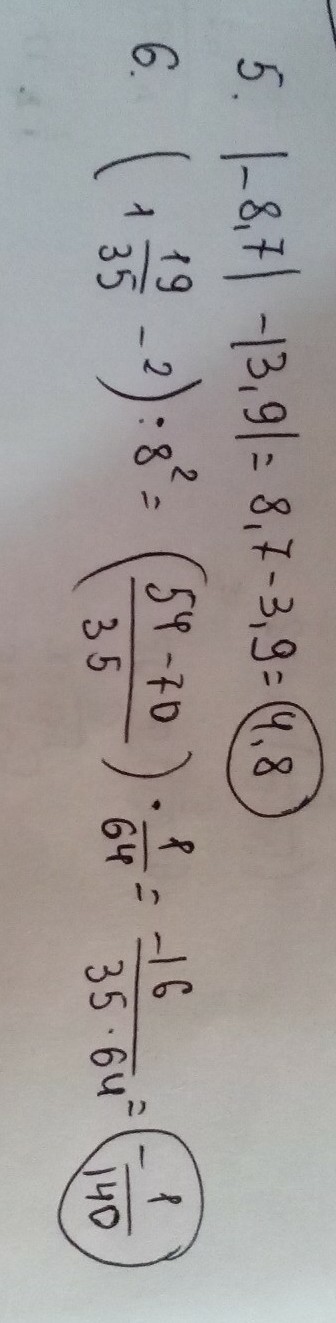 5. |-8,7| - |3,9| = 8,7 - 3,9 = 4,8
6. (1 19/35 - 2) : 8² = (54 - 70 / 35) · 1/64 = -16 / 35 · 64 = -1/140